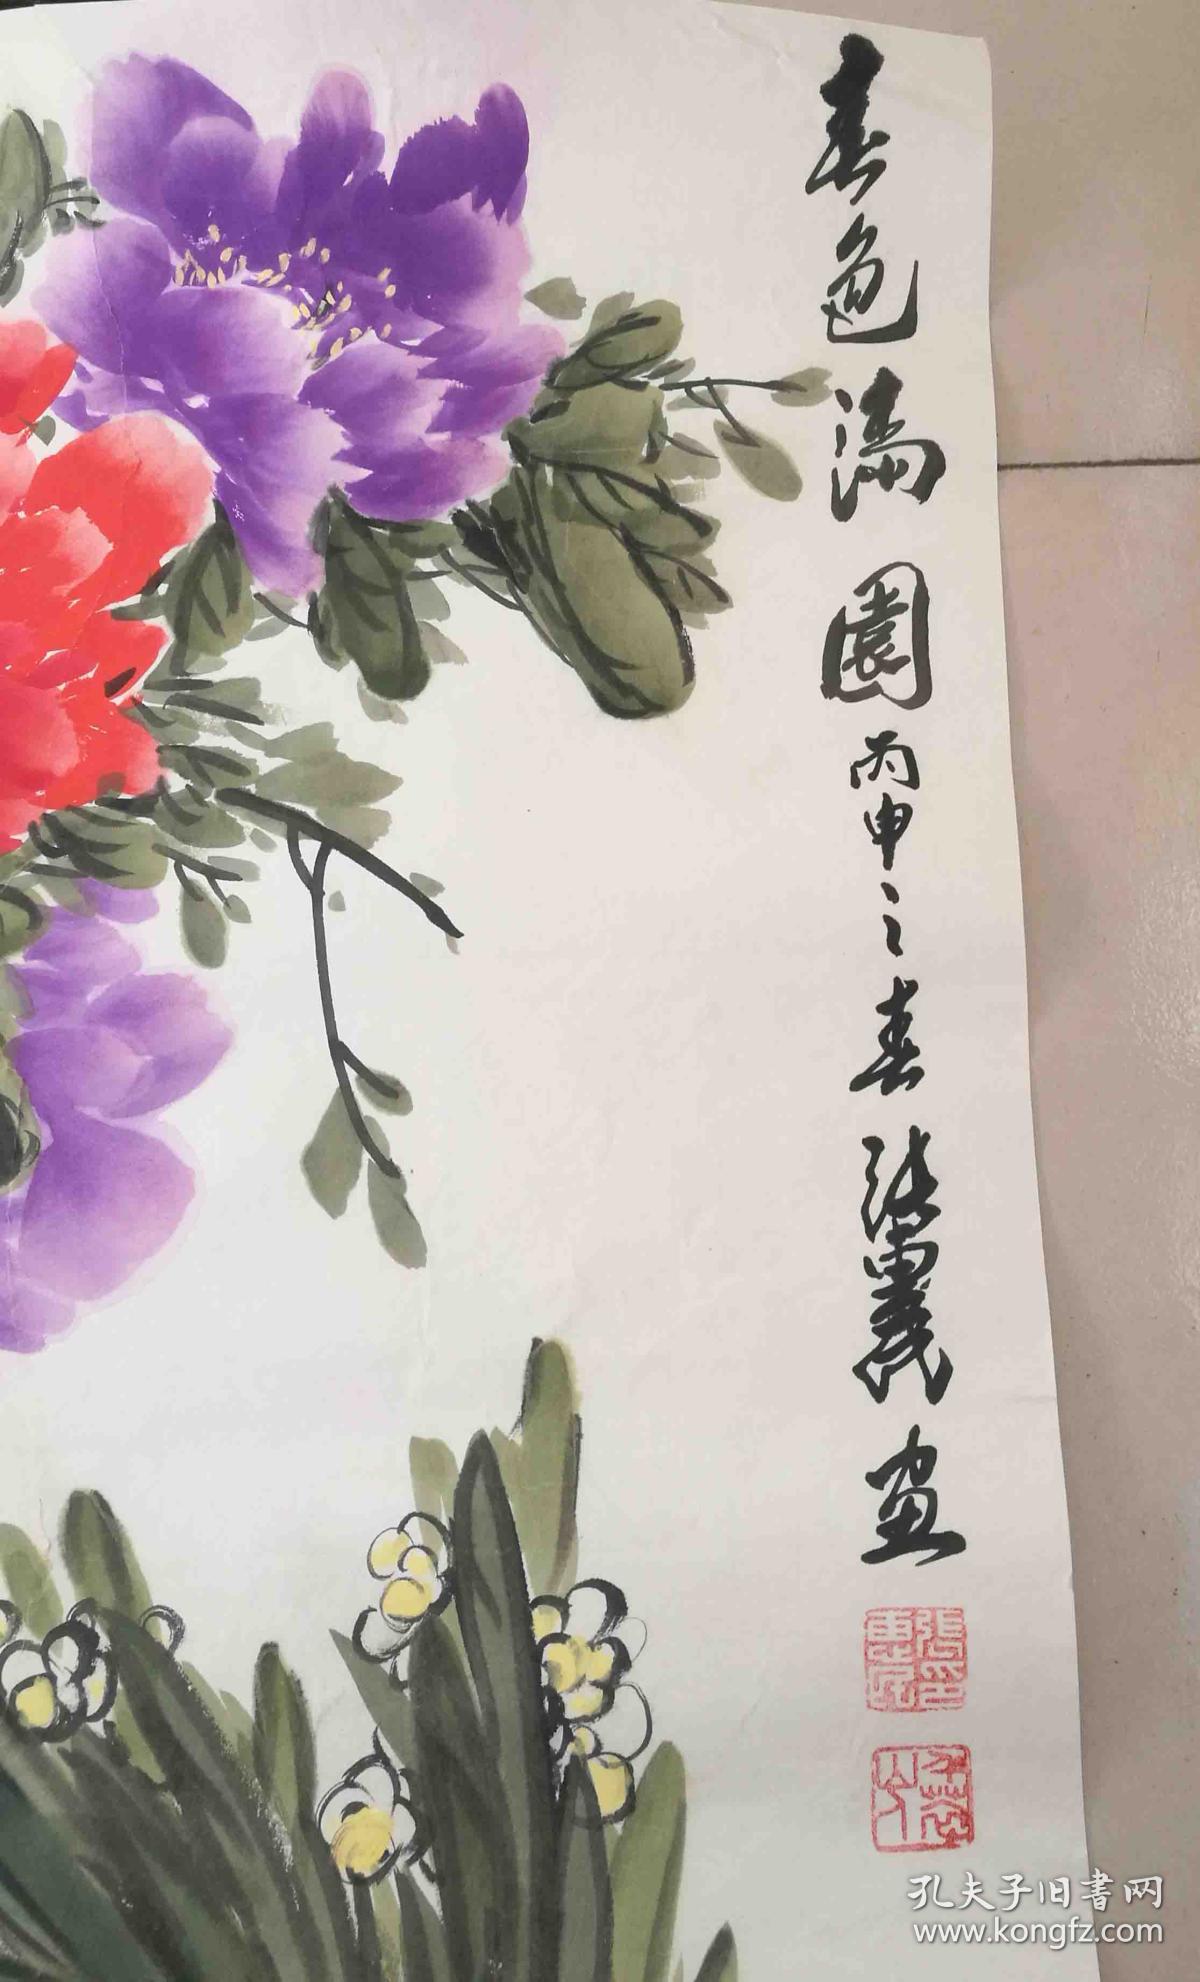 春色满園 丙申之春 张惠民画
孔夫子旧書网
www.kongfz.com